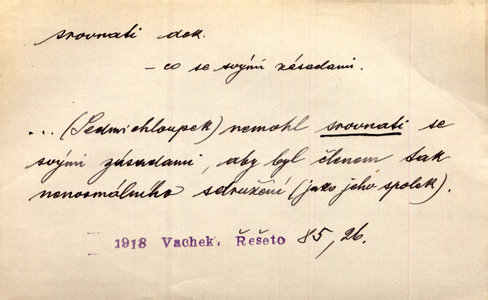 srovnati dok.
– co se svými zásadami.
... (Sedmichloupek) nemohl srovnati se
svými zásadami, aby byl členem tak
nenormálního sdružení (jako jeho spolek).
1918 Vachek, Řešeto 85, 26.